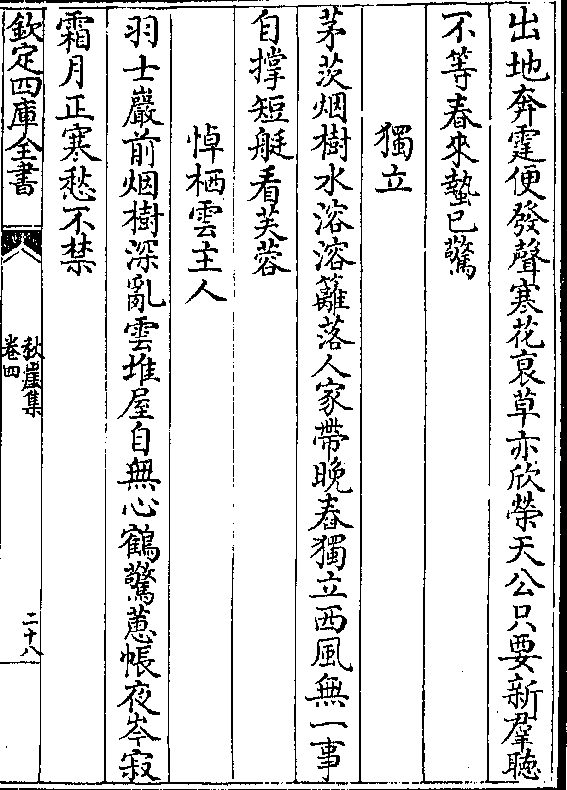 出地奔霆便發聲寒花衰草亦欣榮天公只要新羣聴
不等春來蟄已驚
獨立
茅茨烟樹水溶溶籬落人家帶晚舂獨立西風無一事
自撑短艇看芙蓉
悼栖雲主人
羽士巖前烟樹深亂雲堆屋自無心鶴驚蕙帳夜岑寂
霜月正寒愁不禁
欽定四庫全書
秋崖集
卷四
二十八